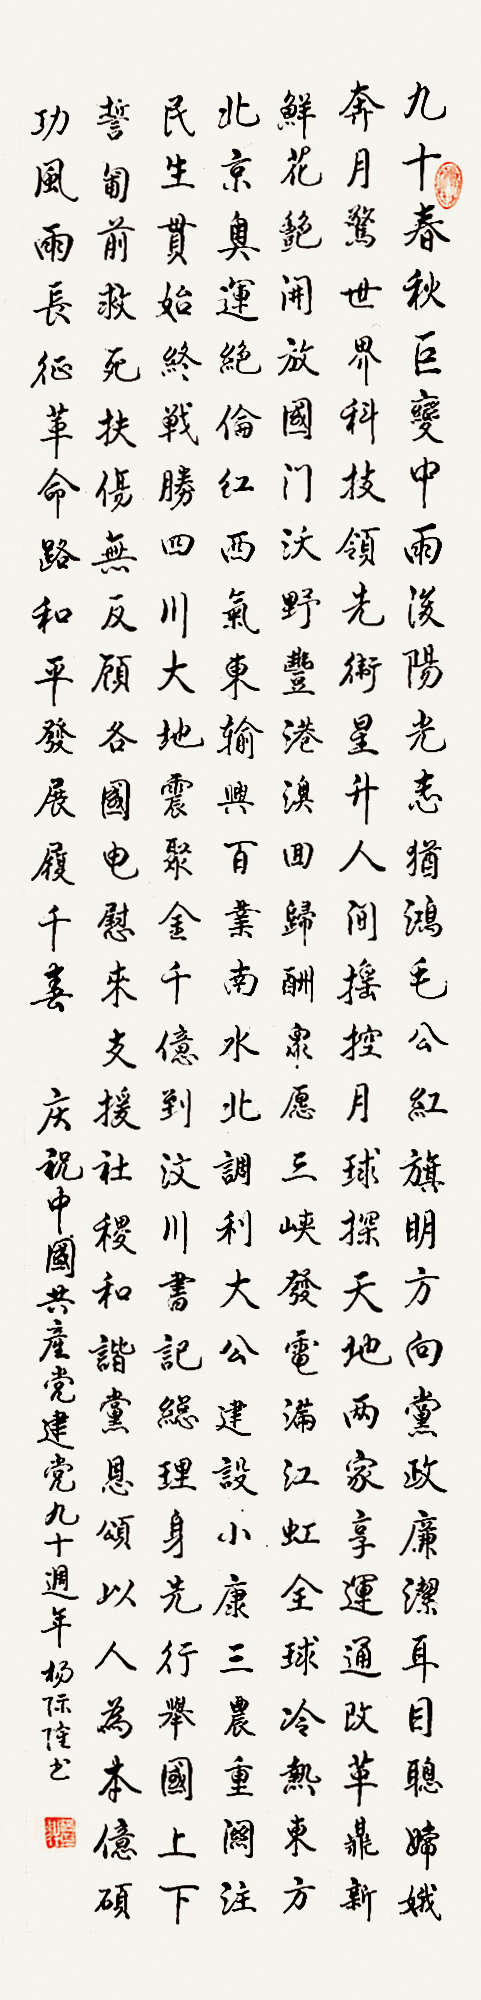 九十春秋巨變中雨後陽光志猶鴻毛公紅旗明方向黨政廉潔耳目聰嫦娥
奔月驚世界科技領先衛星升人间搖控月球探天地两家享運通改革鼎新
鮮花艷開放國门沃野豐港澳回歸酬衆愿三峽發電滿江虹全球冷熱東方
北京奥運絕倫红西氣東输興百業南水北調利大公建設小康三農重関注
民生貫始終戦勝四川大地震聚金千億到汶川書記総理身先行舉國上下
誓匍前救死扶傷無反顧各國电慰来支援社稷和諧黨恩頌以人為本億碩
功風雨長征革命路和平發展履千春 庆祝中國共產党建党九十週年杨际隆书